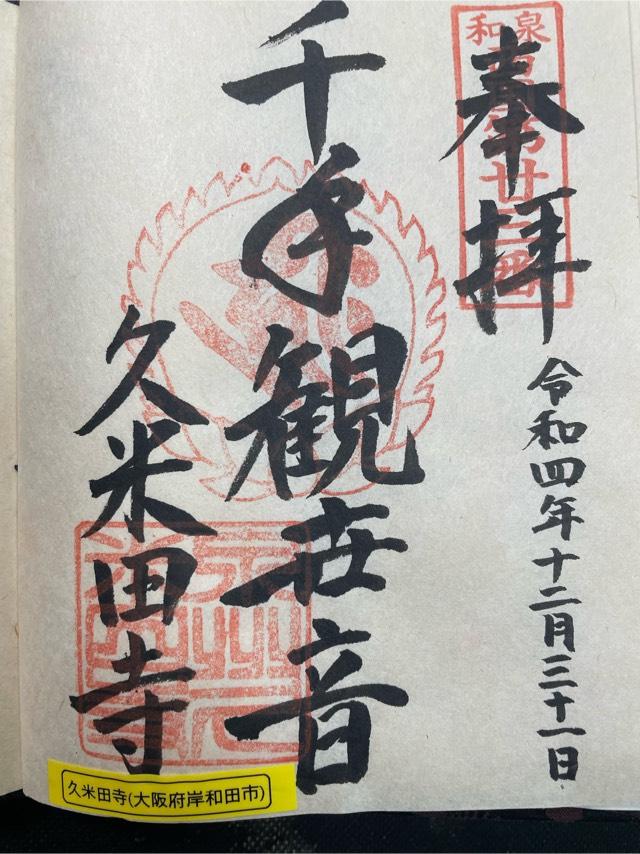 奉拝
令和四年十二月三十一日
千手観世音
久米田寺
久米田寺(大阪府岸和田市)